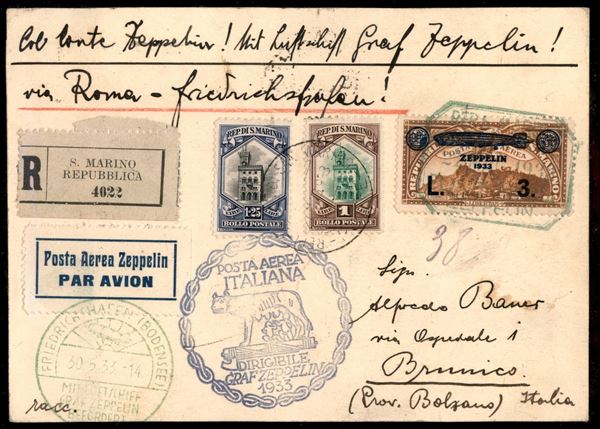 Col conte Zeppelin! Mit Luftschiff Graf Zeppelin!
via Roma - Friedrichshafen!
R
S. MARINO
REPUBBLICA
4022
REP. DI S. MARINO
LIRE 1·25 LIRE
BOLLO POSTALE
REP. DI S. MARINO
LIRA 1 LIRA
BOLLO POSTALE
POSTA AEREA
ZEPPELIN
1933
L. 3.
Posta Aerea Zeppelin
PAR AVION
38
POSTA AEREA
ITALIANA
DIRIGIBILE
GRAF ZEPPELIN
1933
FRIEDRICHSHAFEN (BODENSEE)
30.5.33.-14
MIT LUFTSCHIFF
GRAF ZEPPELIN
BEFÖRDERT
racc.
Sig.
Alfredo Bauer
via Ospedale 1
Brunico
(Prov. Bolzano) Italia